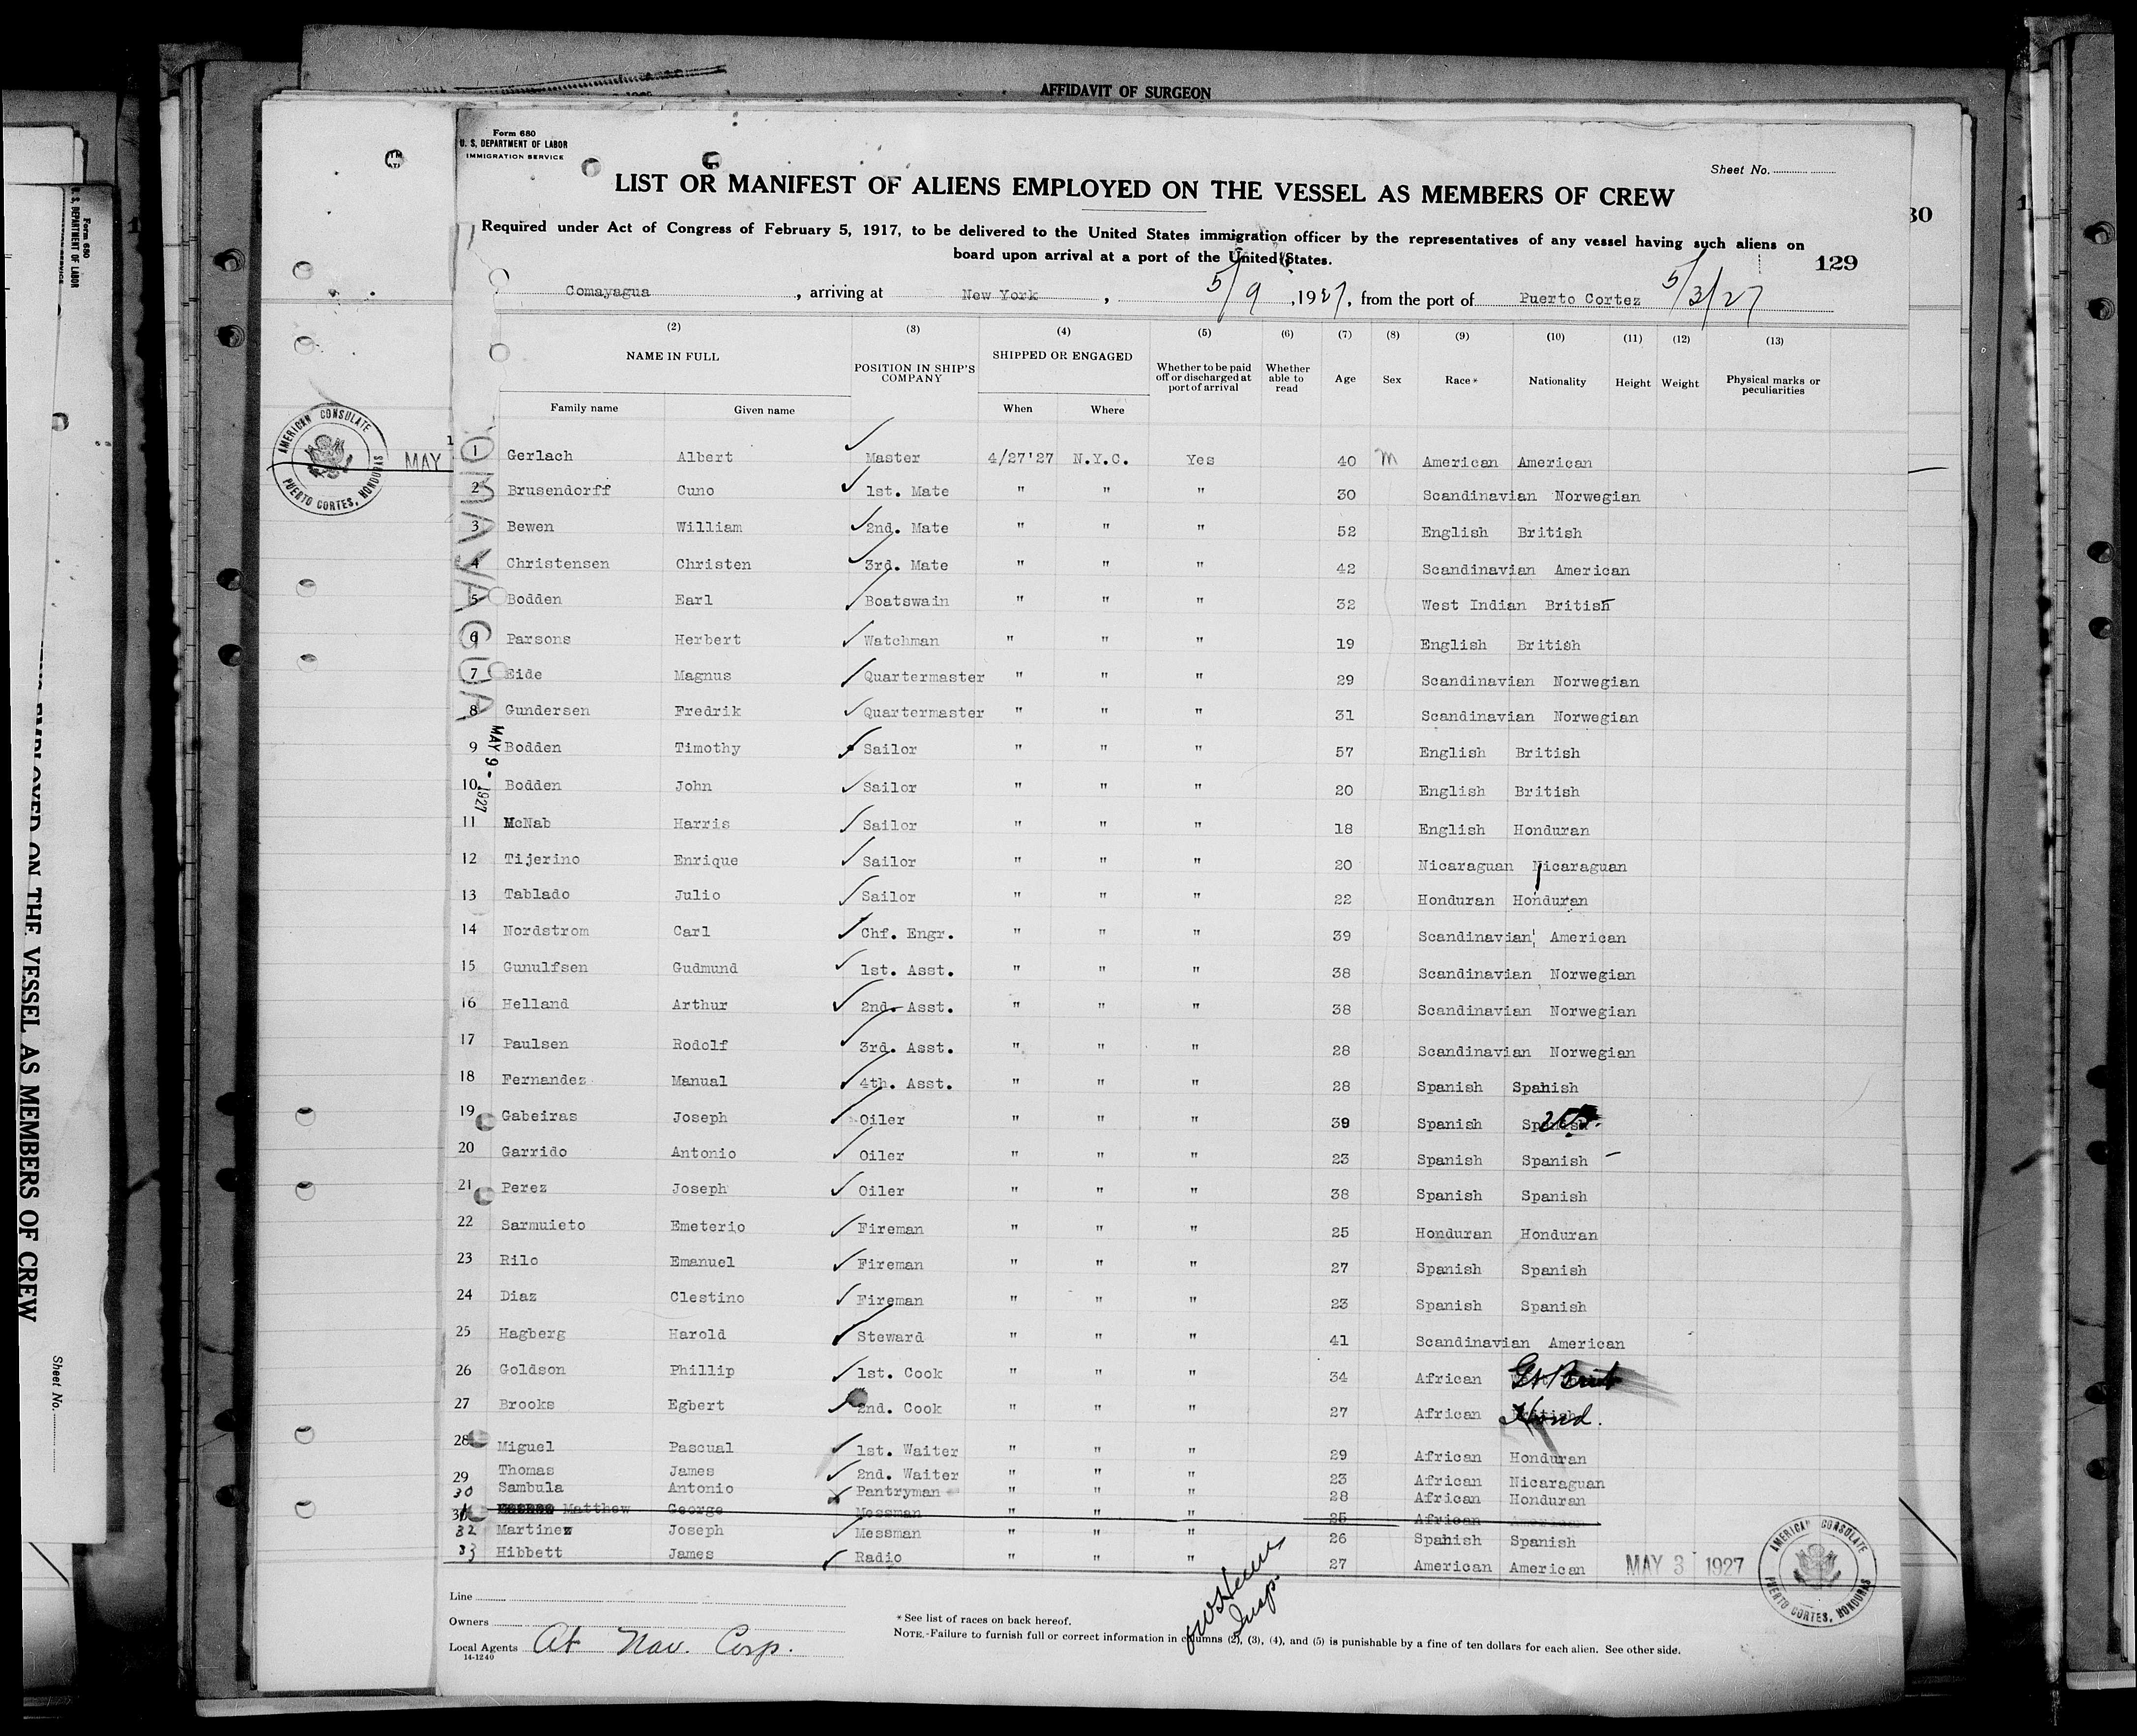 AFFIDAVIT OF SURGEON
Form 680
U. S. DEPARTMENT OF LABOR
IMMIGRATION SERVICE
Sheet No.
LIST OR MANIFEST OF ALIENS EMPLOYED ON THE VESSEL AS MEMBERS OF CREW
Required under Act of Congress of February 5, 1917, to be delivered to the United States immigration officer by the representatives of any vessel having such aliens on
board upon arrival at a port of the United States.
129
30
Comayagua, arriving at New York, 5/9, 1927, from the port of Puerto Cortez 5/3/27
(2) (3) (4) (5) (6) (7) (8) (9) (10) (11) (12) (13)
NAME IN FULL POSITION IN SHIP'S COMPANY SHIPPED OR ENGAGED Whether to be paid off or discharged at port of arrival Whether able to read Age Sex Race* Nationality Height Weight Physical marks or peculiarities
Family name Given name When Where
1 Gerlach Albert Master 4/27'27 N.Y.C. Yes 40 M American American
2 Brusendorff Cuno 1st. Mate " " " 30 Scandinavian Norwegian
3 Bewen William 2nd. Mate " " " 52 English British
4 Christensen Christen 3rd. Mate " " " 42 Scandinavian American
5 Bodden Earl Boatswain " " " 32 West Indian British
6 Parsons Herbert Watchman " " " 19 English British
7 Eide Magnus Quartermaster " " " 29 Scandinavian Norwegian
8 Gundersen Fredrik Quartermaster " " " 31 Scandinavian Norwegian
9 Bodden Timothy Sailor " " " 57 English British
10 Bodden John Sailor " " " 20 English British
11 McNab Harris Sailor " " " 18 English Honduran
12 Tijerino Enrique Sailor " " " 20 Nicaraguan Nicaraguan
13 Tablado Julio Sailor " " " 22 Honduran Honduran
14 Nordstrom Carl Chf. Engr. " " " 39 Scandinavian American
15 Gunulfsen Gudmund 1st. Asst. " " " 38 Scandinavian Norwegian
16 Helland Arthur 2nd. Asst. " " " 38 Scandinavian Norwegian
17 Paulsen Rodolf 3rd. Asst. " " " 28 Scandinavian Norwegian
18 Fernandez Manual 4th. Asst. " " " 28 Spanish Spanish
19 Gabeiras Joseph Oiler " " " 39 Spanish Spanish
20 Garrido Antonio Oiler " " " 23 Spanish Spanish
21 Perez Joseph Oiler " " " 38 Spanish Spanish
22 Sarmuieto Emeterio Fireman " " " 25 Honduran Honduran
23 Rilo Emanuel Fireman " " " 27 Spanish Spanish
24 Diaz Clestino Fireman " " " 23 Spanish Spanish
25 Hagberg Harold Steward " " " 41 Scandinavian American
26 Goldson Phillip 1st. Cook " " " 34 African Gt Brit
27 Brooks Egbert 2nd. Cook " " " 27 African British Hond.
28 Miguel Pascual 1st. Waiter " " " 29 African Honduran
29 Thomas James 2nd. Waiter " " " 23 African Nicaraguan
30 Sambula Antonio Pantryman " " " 28 African Honduran
31 Matthew George Messman " " " 25 African American
32 Martinez Joseph Messman " " " 26 Spanish Spanish
33 Hibbett James Radio " " " 27 American American
COMAYAGUA
MAY 9 - 1927
AMERICAN CONSULATE
PUERTO CORTES, HONDURAS
MAY
MAY 3 1927
AMERICAN CONSULATE
PUERTO CORTES, HONDURAS
Line
Owners
Local Agents At Nav. Corp.
14-1240
Insp.
* See list of races on back hereof.
NOTE.-Failure to furnish full or correct information in columns (2), (3), (4), and (5) is punishable by a fine of ten dollars for each alien. See other side.
Form 680
U. S. DEPARTMENT OF LABOR
EMPLOYED ON THE VESSEL AS MEMBERS OF CREW
Sheet No.